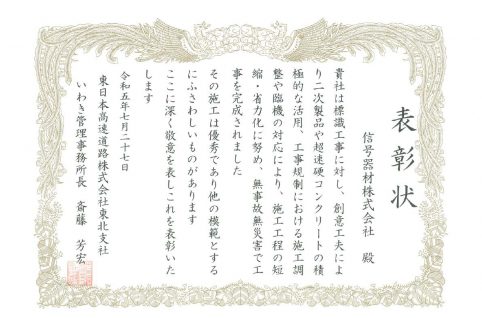 表彰状
信号器材株式会社 殿
貴社は標識工事に対し、創意工夫によ
り二次製品や超速硬コンクリートの積
極的な活用、工事規制における施工調
整や臨機の対応により、施工工程の短
縮・省力化に努め、無事故無災害で工
事を完成されました
その施工は優秀であり他の模範とする
にふさわしいものがあります
ここに深く敬意を表しこれを表彰いた
します
令和五年七月二十七日
東日本高速道路株式会社東北支社
いわき管理事務所長 斎藤 芳宏